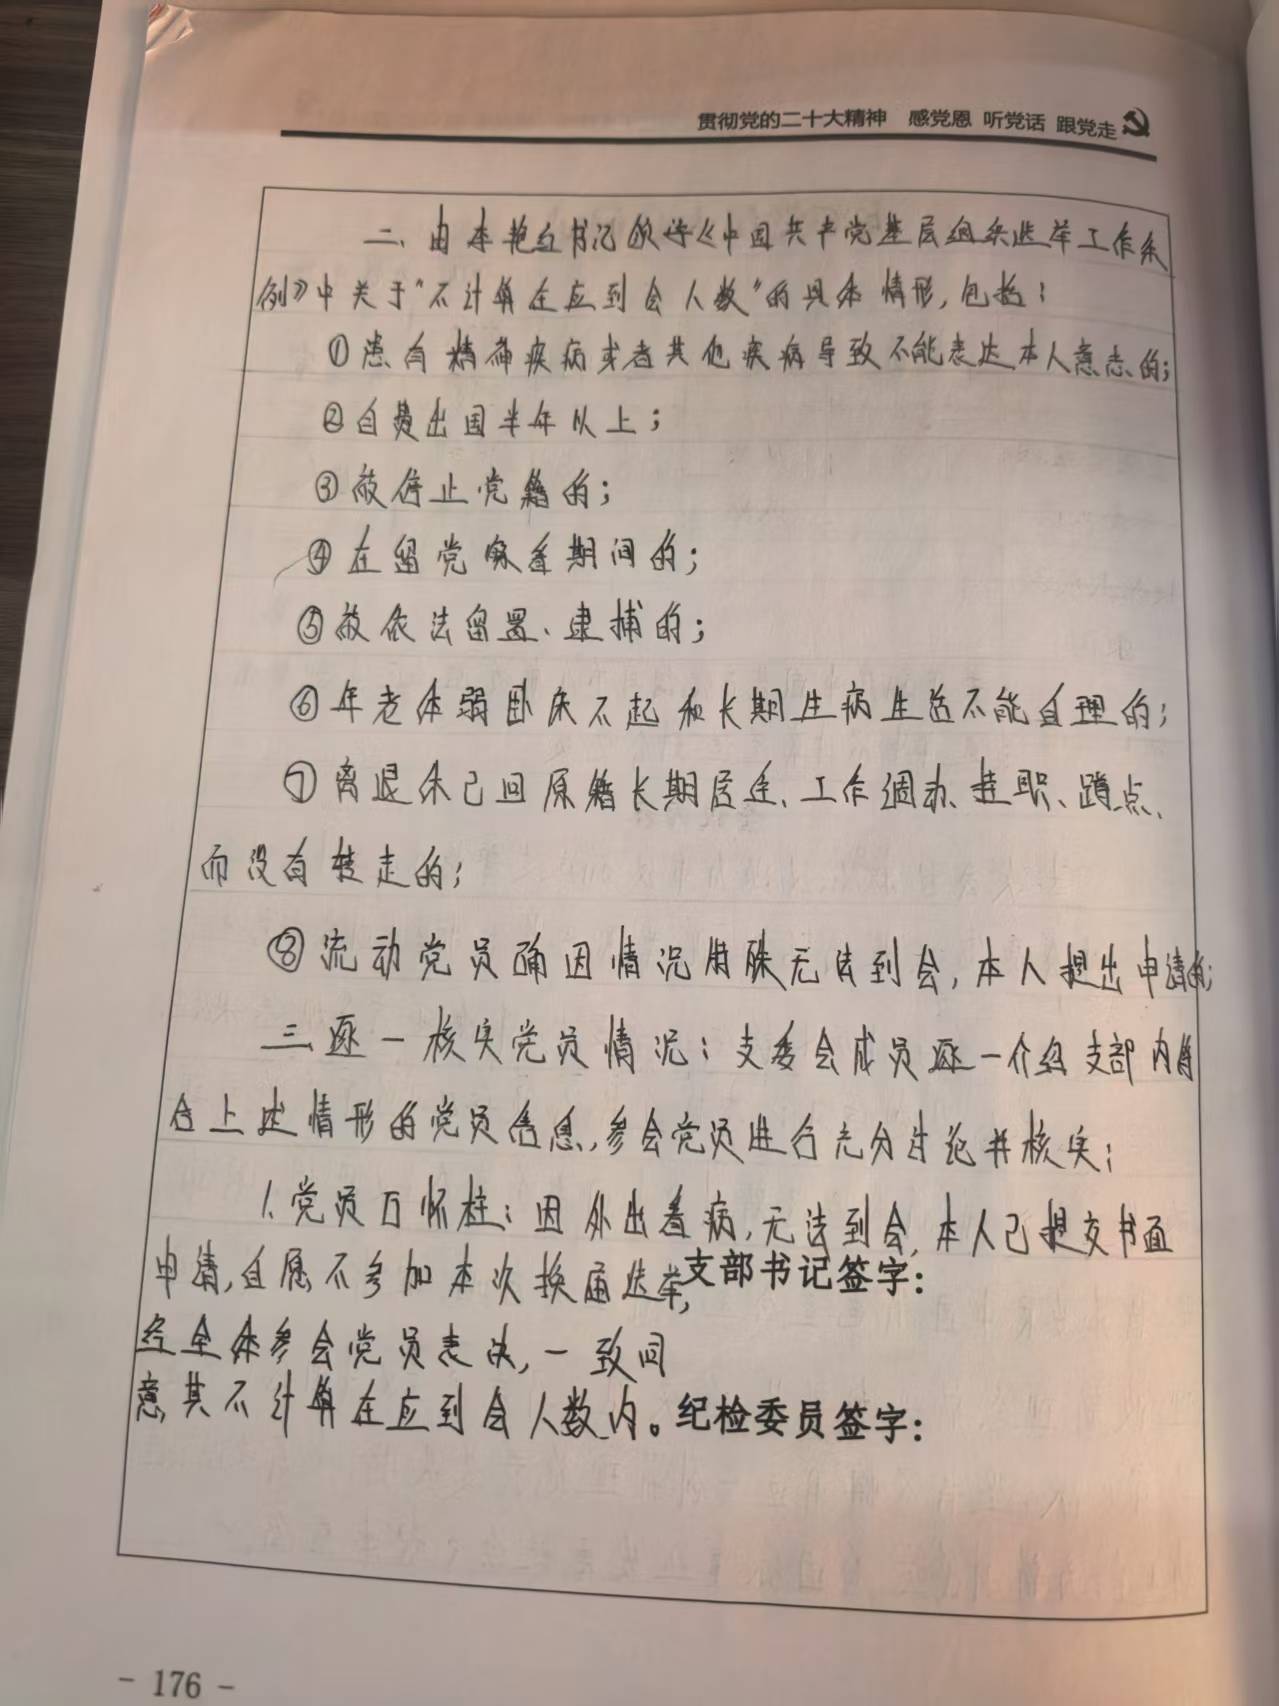 贯彻党的二十大精神 感党恩 听党话 跟党走
二、由本艳红书记领学《中国共产党基层组织选举工作条
例》中关于“不计算在应到会人数”的具体情形,包括:
①患有精神疾病或者其他疾病导致不能表达本人意志的;
②自费出国半年以上;
③被停止党籍的;
④在留党察看期间的;
⑤被依法留置、逮捕的;
⑥年老体弱卧床不起和长期生病生活不能自理的;
⑦离退休已回原籍长期居住、工作调动、挂职、蹲点、
而没有转走的;
⑧流动党员确因情况特殊无法到会,本人提出申请的;
三、逐一核实党员情况:支委会成员逐一介绍支部内符
合上述情形的党员信息,参会党员进行充分讨论并核实;
1.党员万怀柱:因外出看病,无法到会,本人已提交书面
申请,自愿不参加本次换届选举,
支部书记签字:
经全体参会党员表决,一致同
意其不计算在应到会人数内。
纪检委员签字:
- 176 -